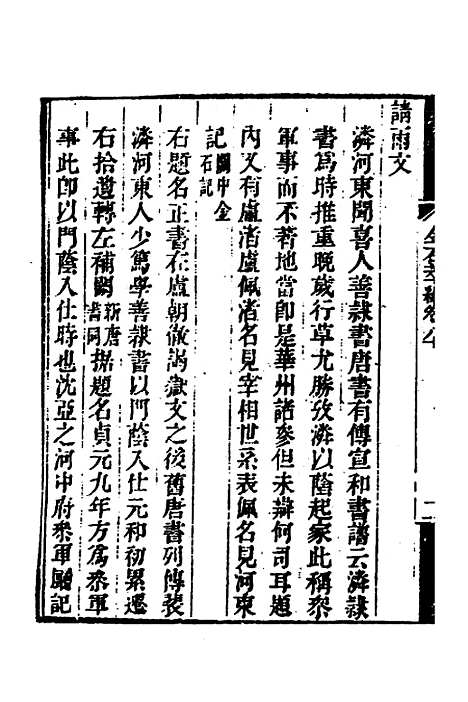 請雨文
金石萃編卷八十
二
潾河東聞喜人善隷書唐書有傳宣和書譜云潾隷
書爲時推重晚歲行草尤勝攷潾以蔭起家此稱叅
軍事而不著地當卽是華州諸叅但未辯何司耳題
內又有盧渚盧佩渚名見宰相世系表佩名見河東
記關中金
石記
右題名正書在盧朝徹謁嶽文之後舊唐書列傳裴
潾河東人少篤學善隷書以門蔭入仕元和初累遷
右拾遺轉左補闕新唐
書同據題名貞元九年方爲叅軍
事此卽以門蔭入仕時也沈亞之河中府叅軍廳記